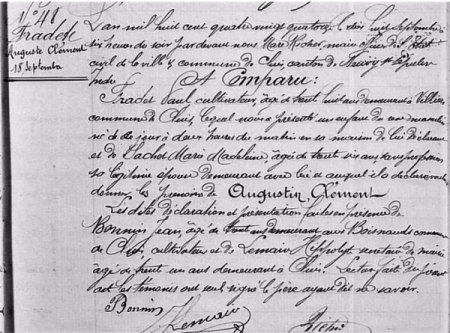 N° 48
Fradet
Auguste Clément
18 septembre
L'an mil huit cent quatre vingt quatorze, le dix huit septembre à
six heures du soir par devant nous Marc Rochet, maire officier de l'État
civil de la ville & commune de Cluis, canton de Neuvy St
Indre
A Comparu :
Fradet Paul cultivateur, âgé de trente huit ans demeurant à
commune de Cluis, lequel nous a présenté un enfant du sexe masculin
né de ce jour à deux heures du matin en sa maison de lui déclarant
et de Marie Madeleine âgée de trente six ans sans profession
sa légitime épouse demeurant avec lui et auquel il a déclaré vouloir
donner les prénoms de Augustin, Clément
Les dites déclaration et présentation faites en présence de
Bonnin Jean, âgé de trente ans demeurant aux commune
de Cluis cultivateur et de Lemain Hippolyte secrétaire de mairie
âgé de trente un ans demeurant à Cluis. Lecture faite du présent
acte les témoins ont seuls signé le père ayant dit ne savoir.
Bonnin
Lemain